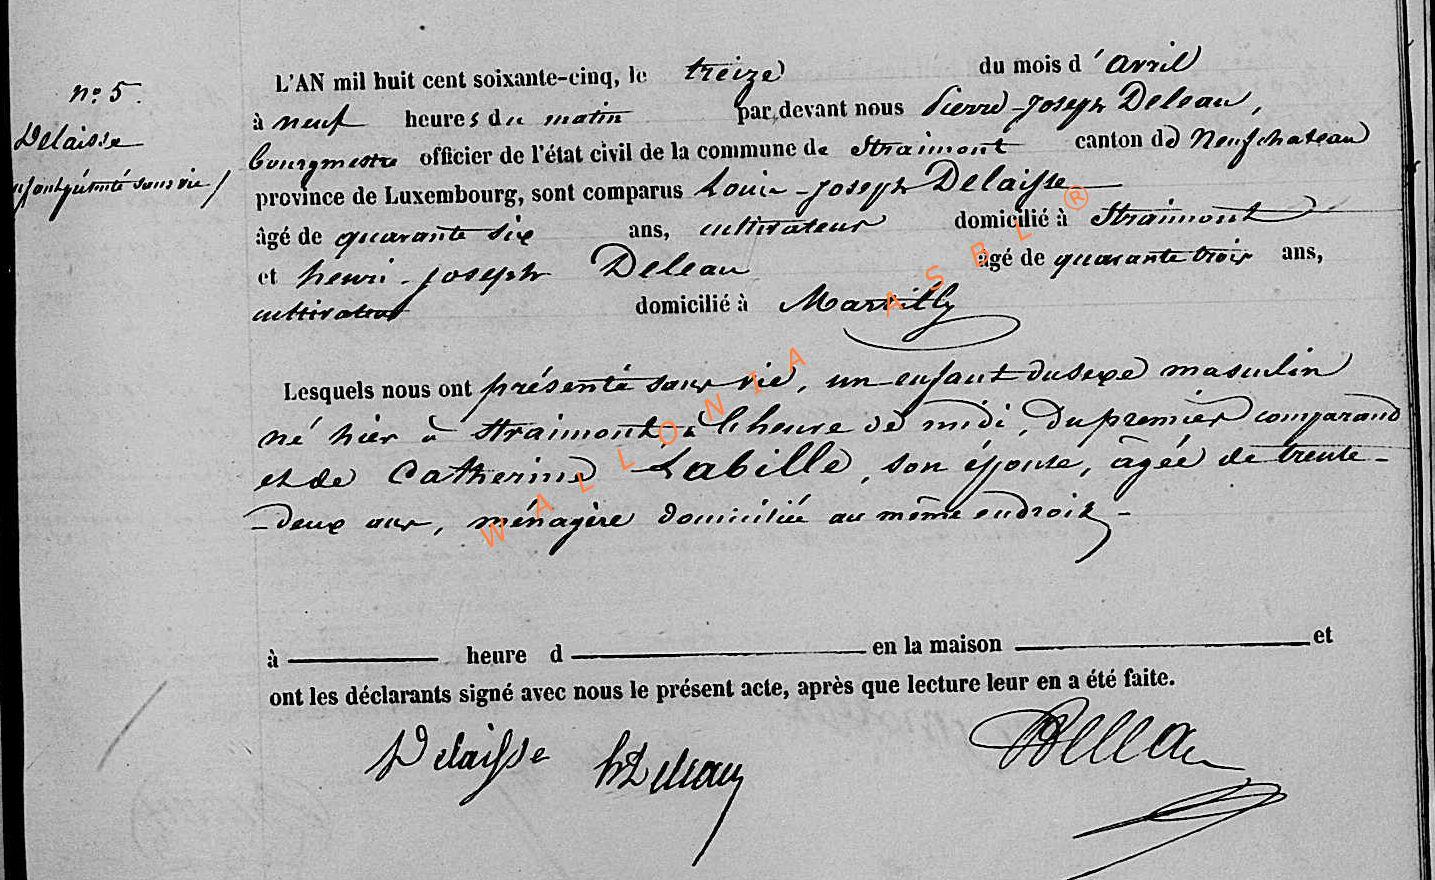 n° 5.
Delaisse
enfant présenté sans vie /
L'AN mil huit cent soixante-cinq, le treize du mois d'avril
à neuf heures du matin par devant nous Pierre-Joseph Deleau,
bourgmestre officier de l'état civil de la commune de Straimont canton de Neufchateau
province de Luxembourg, sont comparus Louis-Joseph Delaisse
âgé de quarante six ans, cultivateur domicilié à Straimont
et henri-joseph Deleau âgé de quarante trois ans,
cultivateur domicilié à Martilly
Lesquels nous ont présenté sans vie, un enfant du sexe masculin
né hier à Straimont à l'heure de midi, du premier comparand
et de Catherine Labille, son épouse, âgée de trente-
-deux ans, ménagère domiciliée au même endroit -
à heure d en la maison et
ont les déclarants signé avec nous le présent acte, après que lecture leur en a été faite.
Delaisse hDeleau PJDeleau
WALLONIA ASBL ®